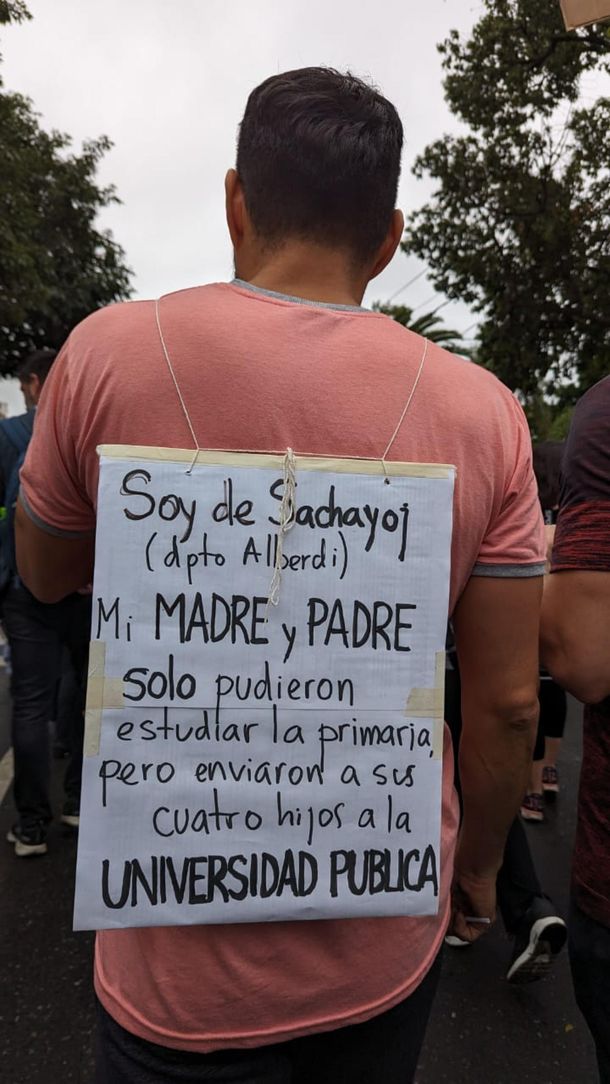 Soy de Sachayoj
(dpto Alberdi)
Mi MADRE y PADRE
solo pudieron
estudiar la primaria,
pero enviaron a sus
cuatro hijos a la
UNIVERSIDAD PUBLICA